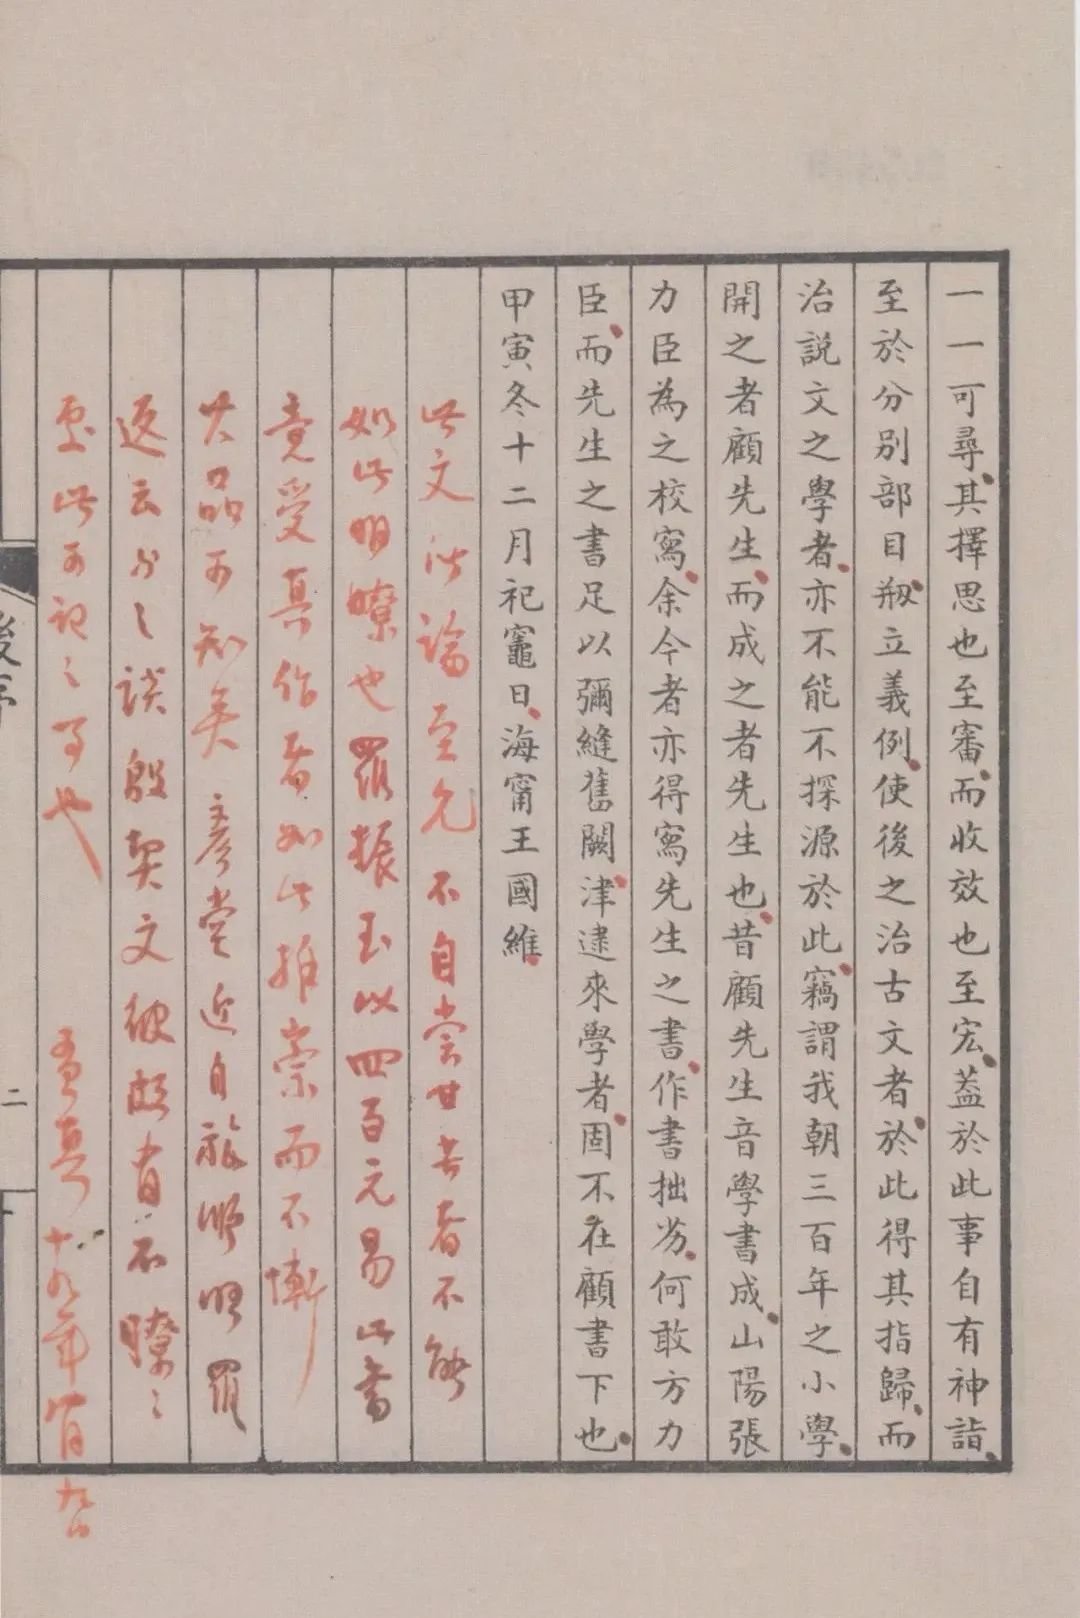 一一可尋其擇思也至審而收效也至宏蓋於此事自有神詣
至於分別部目剏立義例使後之治古文者於此得其指歸而
治說文之學者亦不能不探源於此竊謂我朝三百年之小學
開之者顧先生而成之者先生也昔顧先生音學書成山陽張
力臣為之校寫余今者亦得寫先生之書作書拙劣何敢方力
臣而先生之書足以彌縫舊闕津逮來學者固不在顧書下也
甲寅冬十二月祀竈日海甯王國維
此文所論至允不自當世士者不能
如此明瞭也羅振玉以四百元易此書
竟受真作者如此推崇而不慚
大品可知矣彥堂近自旅順晤羅
返云與之談殷契文彼頗有不瞭之
至此可記之事也
孟真十九年八月九日
後序
二